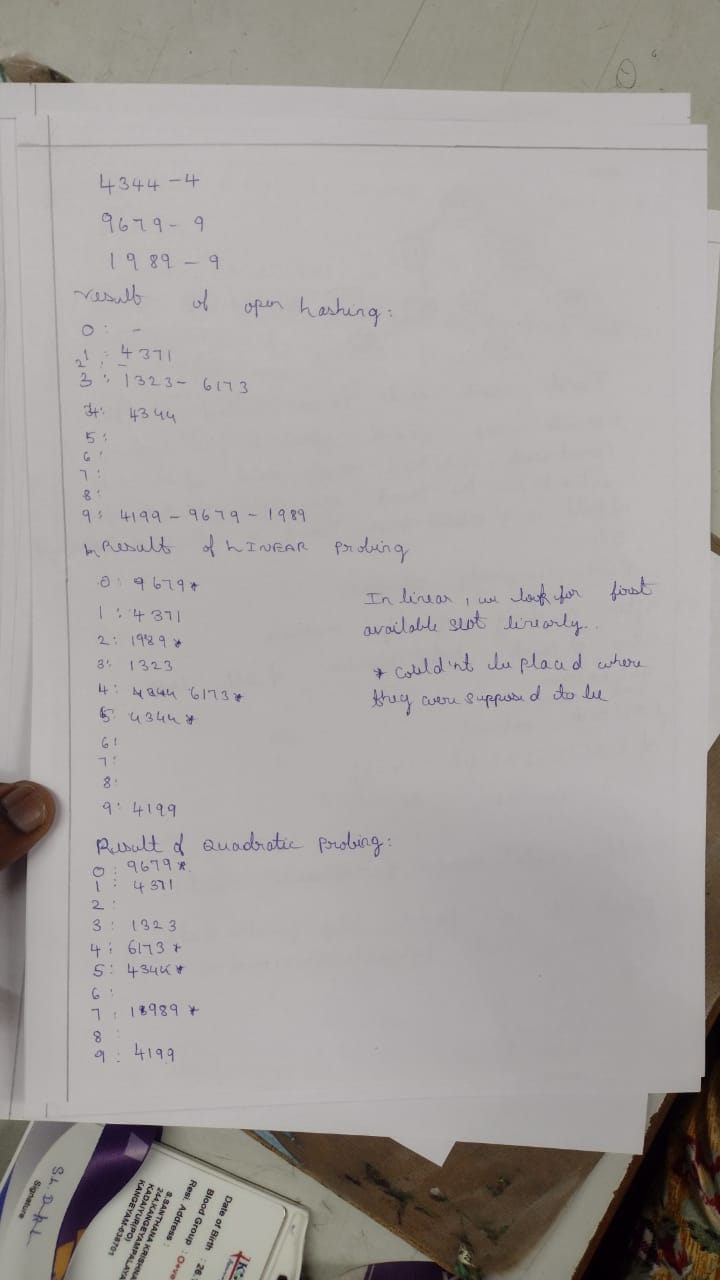 4344 - 4
9679 - 9
1989 - 9
result of open hashing:
0 : -
1 : 4371
2 : -
3 : 1323 - 6173
4: 4344
5 :
6 :
7 :
8 :
9 : 4199 - 9679 - 1989
Result of LINEAR probing
0 : 9679*
1 : 4371
2 : 1989*
3 : 1323
4 : 4344 6173*
5 : 4344*
6 :
7 :
8 :
9 : 4199
In linear, we look for first
available slot linearly..
* could'nt be placed where
they were supposed to be
Result of Quadratic probing:
0 : 9679*
1 : 4371
2 :
3 : 1323
4 : 6173*
5 : 4344*
6 :
7 : 1989*
8 :
9 : 4199
Signature
Date of Birth : 26.
Blood Group : O+ve
Resi. Address :
S.SANTHANA KRISHNA
KANGEYAM-638701